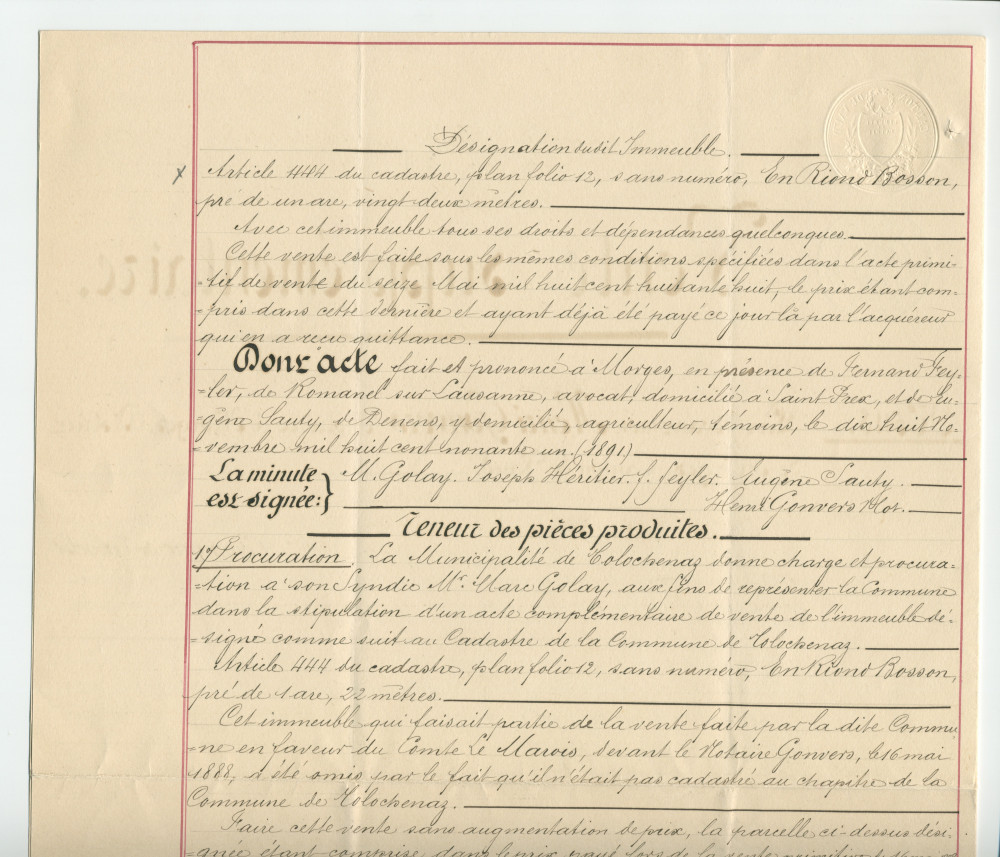 Désignation dudit Immeuble.
Article 444 du cadastre, plan folio 12, sans numéro, En Riond Bosson,
pré de un are, vingt-deux mètres.
Avec cet immeuble tous ses droits et dépendances quelconques.
Cette vente est faite sous les mêmes conditions spécifiées dans l'acte primi-
-tif de vente du seize Mai mil huit cent huitante huit, le prix étant com-
-pris dans cette dernière et ayant déjà été payé ce jour là par l'acquéreur
qui en a reçu quittance.
Dont acte fait et prononcé à Morges, en présence de Fernand Fey-
-ler, de Romanel sur Lausanne, avocat, domicilié à Saint Prex, et de Eu-
-gène Sauty, de Denens, y domicilié, agriculteur, témoins, le dix huit No-
-vembre mil huit cent nonante un. (1891)
La minute est signée: } M. Golay. Joseph Héritier. f. feyler. Eugène Sauty.
Henri Gonvers Not.
Teneur des pièces produites.
1º/ Procuration. La Municipalité de Tolochenaz donne charge et procura-
-tion à son Syndic Mr. Marc Golay, aux fins de représenter la Commune
dans la stipulation d'un acte complémentaire de vente de l'immeuble dé-
-signé comme suit au Cadastre de la Commune de Tolochenaz.
Article 444 du cadastre, plan folio 12, sans numéro, En Riond Bosson,
pré de 1 are, 22 mètres.
Cet immeuble qui faisait partie de la vente faite par la dite Commu-
-ne en faveur du Comte Le Marois, devant le Notaire Gonvers, le 16 mai
1888, a été omis par le fait qu'il n'était pas cadastré au chapitre de la
Commune de Tolochenaz.
Faire cette vente sans augmentation de prix, la parcelle ci-dessus dési-
-gnée étant comprise dans le prix payé lors de la vente primitive